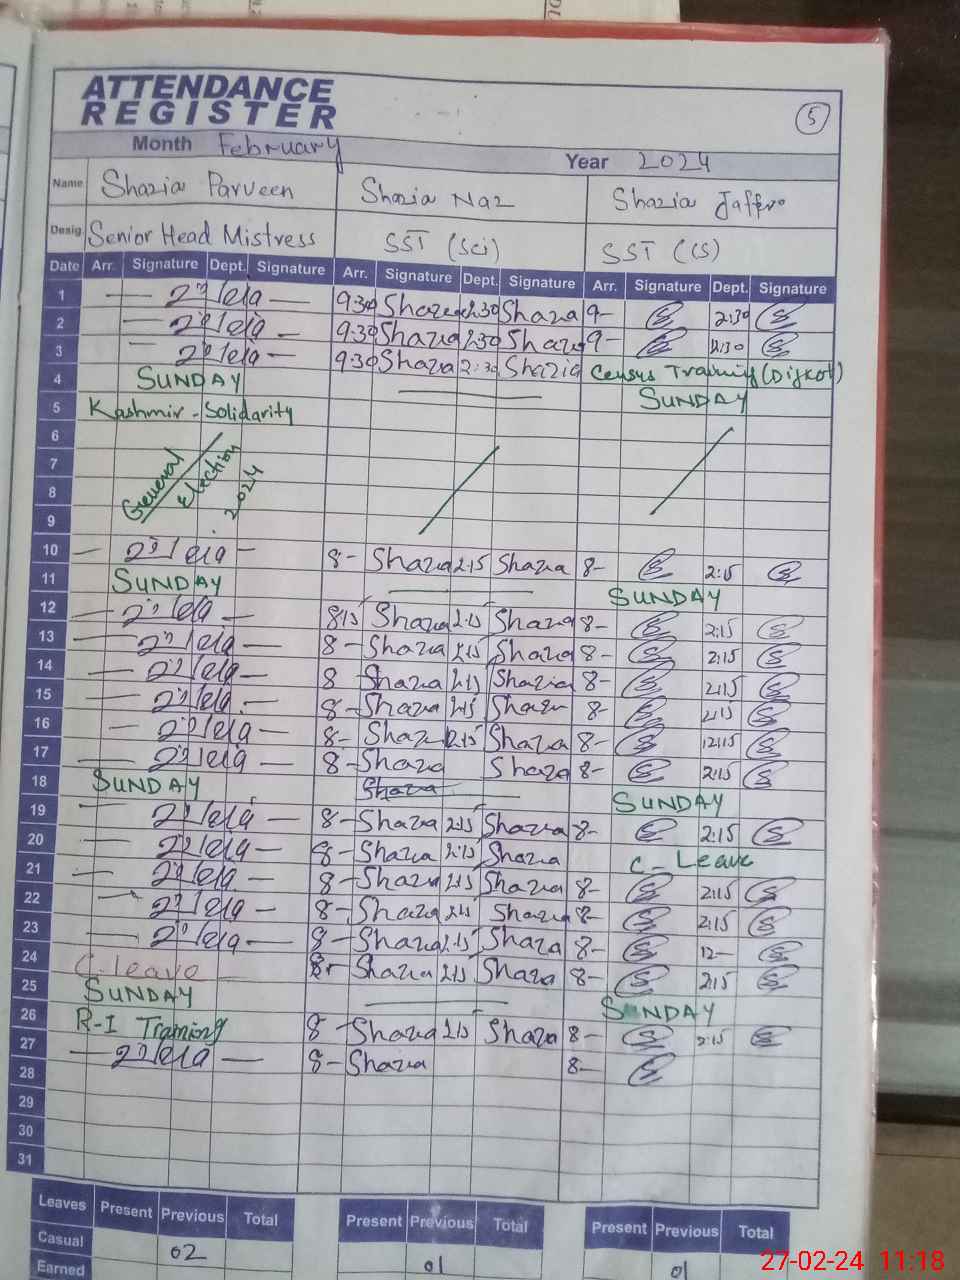 ATTENDANCE
REGISTER
5
Month February Year 2024
Name Shazia Parveen Shazia Naz Shazia Jaffro
Desig. Senior Head Mistress SST (Sci) SST (CS)
Date Arr. Signature Dept. Signature Arr. Signature Dept. Signature Arr. Signature Dept. Signature
1 9:30 Shazia 2:30 Shazia 9- 2:30
2 9:30 Shazia 2:30 Shazia 9- 2:30
3 9:30 Shazia 2:30 Shazia Census Training
4 SUNDAY SUNDAY
5 Kashmir - Solidarity
6
7 General
8 Election
9 2024
10 8- Shazia 2:15 Shazia 8- 2:15
11 SUNDAY SUNDAY
12 8:15 Shazia 2:15 Shazia 8- 2:15
13 8- Shazia 2:15 Shazia 8- 2:15
14 8 Shazia 2:15 Shazia 8- 2:15
15 8- Shazia 2:15 Shazia 8- 2:15
16 8- Shazia 12:15 Shazia 8- 12:15
17 8- Shazia Shazia 8- 2:15
18 SUNDAY Shazia SUNDAY
19 8- Shazia 2:15 Shazia 8- 2:15
20 8- Shazia 2:15 Shazia C- Leave
21 8- Shazia 2:15 Shazia 8- 2:15
22 8- Shazia 2:15 Shazia 8- 2:15
23 8- Shazia 2:15 Shazia 8- 12-
24 C. leave 8- Shazia 2:15 Shazia 8- 2:15
25 SUNDAY SUNDAY
26 R-I Training 8- Shazia 2:15 Shazia 8- 2:15
27 8- Shazia 8-
28
29
30
31
Leaves Present Previous Total Present Previous Total Present Previous Total
Casual 02 01 01
Earned
27-02-24 11:18